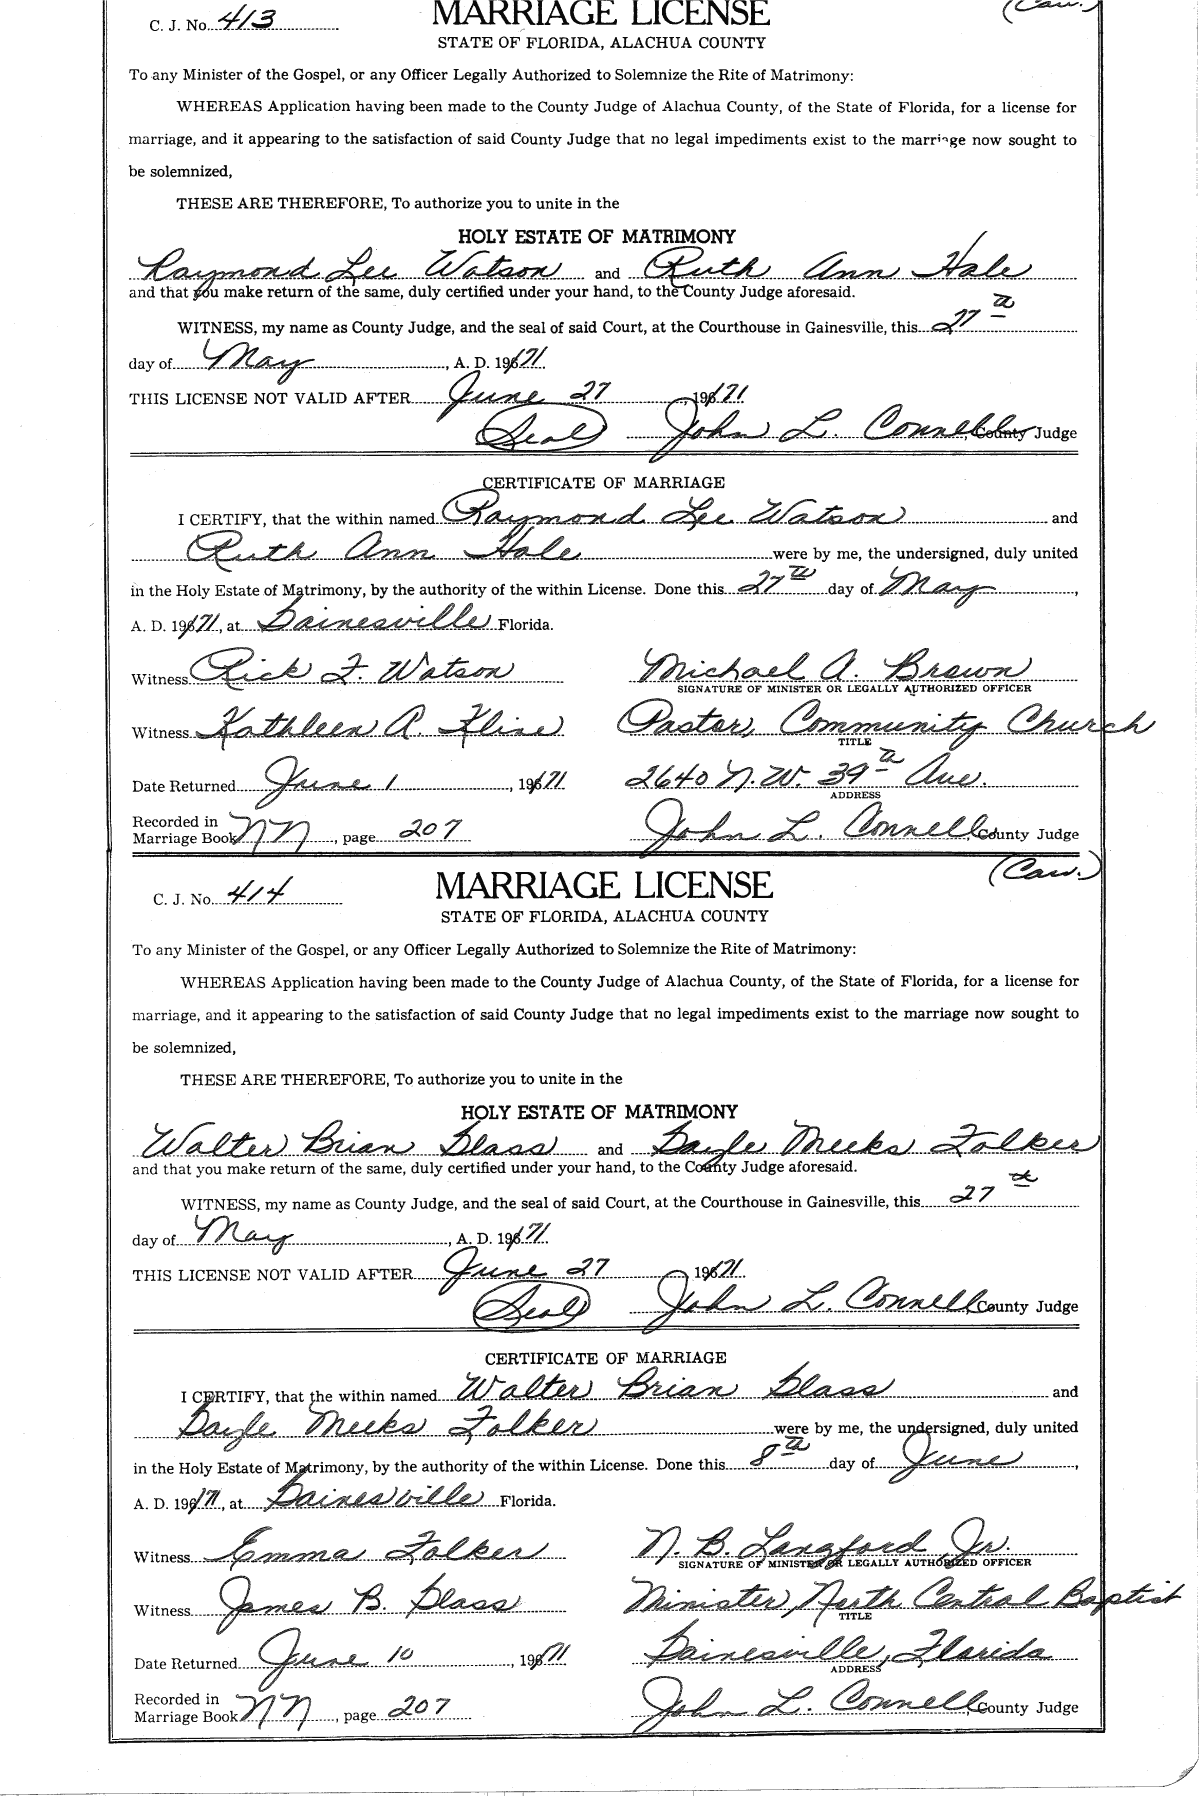 C. J. No. 413 MARRIAGE LICENSE (Cau.)
STATE OF FLORIDA, ALACHUA COUNTY
To any Minister of the Gospel, or any Officer Legally Authorized to Solemnize the Rite of Matrimony:
WHEREAS Application having been made to the County Judge of Alachua County, of the State of Florida, for a license for
marriage, and it appearing to the satisfaction of said County Judge that no legal impediments exist to the marriage now sought to
be solemnized,
THESE ARE THEREFORE, To authorize you to unite in the
HOLY ESTATE OF MATRIMONY
Raymond Lee Watson and Ruth Ann Hale
and that you make return of the same, duly certified under your hand, to the County Judge aforesaid.
WITNESS, my name as County Judge, and the seal of said Court, at the Courthouse in Gainesville, this 27th
day of May, A. D. 1971
THIS LICENSE NOT VALID AFTER June 27, 1971
(Seal) John L. Connell, County Judge
CERTIFICATE OF MARRIAGE
I CERTIFY, that the within named Raymond Lee Watson and
Ruth Ann Hale were by me, the undersigned, duly united
in the Holy Estate of Matrimony, by the authority of the within License. Done this 27th day of May,
A. D. 1971, at Gainesville Florida.
Witness Rick F. Watson Michael A. Brown
SIGNATURE OF MINISTER OR LEGALLY AUTHORIZED OFFICER
Witness Kathleen A. Kline Pastor, Community Church
TITLE
Date Returned June 1, 1971 2640 N.W. 39th Ave.
ADDRESS
Recorded in
Marriage Book NN, page 207 John L. Connell, County Judge
(Cau.)
C. J. No. 414 MARRIAGE LICENSE
STATE OF FLORIDA, ALACHUA COUNTY
To any Minister of the Gospel, or any Officer Legally Authorized to Solemnize the Rite of Matrimony:
WHEREAS Application having been made to the County Judge of Alachua County, of the State of Florida, for a license for
marriage, and it appearing to the satisfaction of said County Judge that no legal impediments exist to the marriage now sought to
be solemnized,
THESE ARE THEREFORE, To authorize you to unite in the
HOLY ESTATE OF MATRIMONY
Walter Brian Glass and Gayle Meeks Folker
and that you make return of the same, duly certified under your hand, to the County Judge aforesaid.
WITNESS, my name as County Judge, and the seal of said Court, at the Courthouse in Gainesville, this 27th
day of May, A. D. 1971
THIS LICENSE NOT VALID AFTER June 27 1971
(Seal) John L. Connell, County Judge
CERTIFICATE OF MARRIAGE
I CERTIFY, that the within named Walter Brian Glass and
Gayle Meeks Folker were by me, the undersigned, duly united
in the Holy Estate of Matrimony, by the authority of the within License. Done this 8th day of June,
A. D. 1971, at Gainesville Florida.
Witness Emma Folker N. B. Langford, Jr.
SIGNATURE OF MINISTER OR LEGALLY AUTHORIZED OFFICER
Witness James B. Glass Minister, North Central Baptist
TITLE
Date Returned June 10, 1971 Gainesville, Florida
ADDRESS
Recorded in
Marriage Book NN, page 207 John L. Connell, County Judge